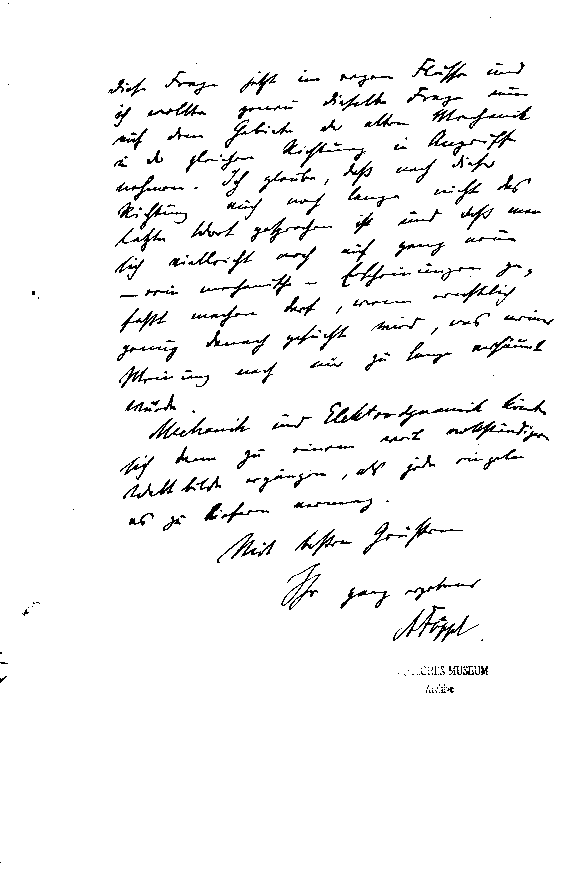 diese Frage jetzt im regen Flusse und
ich wollte genau dieselbe Frage nun
auf dem Gebiete der alten Mechanik
in der gleichen Richtung in Angriff
nehmen. Ich glaube, daß nach dieser
Richtung auch noch lange nicht das
letzte Wort gesprochen ist und daß man
sich vielleicht noch auf ganz neue
– rein mechanische – Erscheinungen ge-
faßt machen darf, wenn ernstlich
genug danach gesucht wird, was meiner
Meinung nach nur zu lange versäumt
wurde.
Mechanik und Elektrodynamik könnten
sich dann zu einem weit vollständigeren
Weltbilde ergänzen, als jede einzeln
es zu liefern vermag.
Mit besten Grüßen
Ihr ganz ergebener
A Föppl.
MUSEUM
Archiv